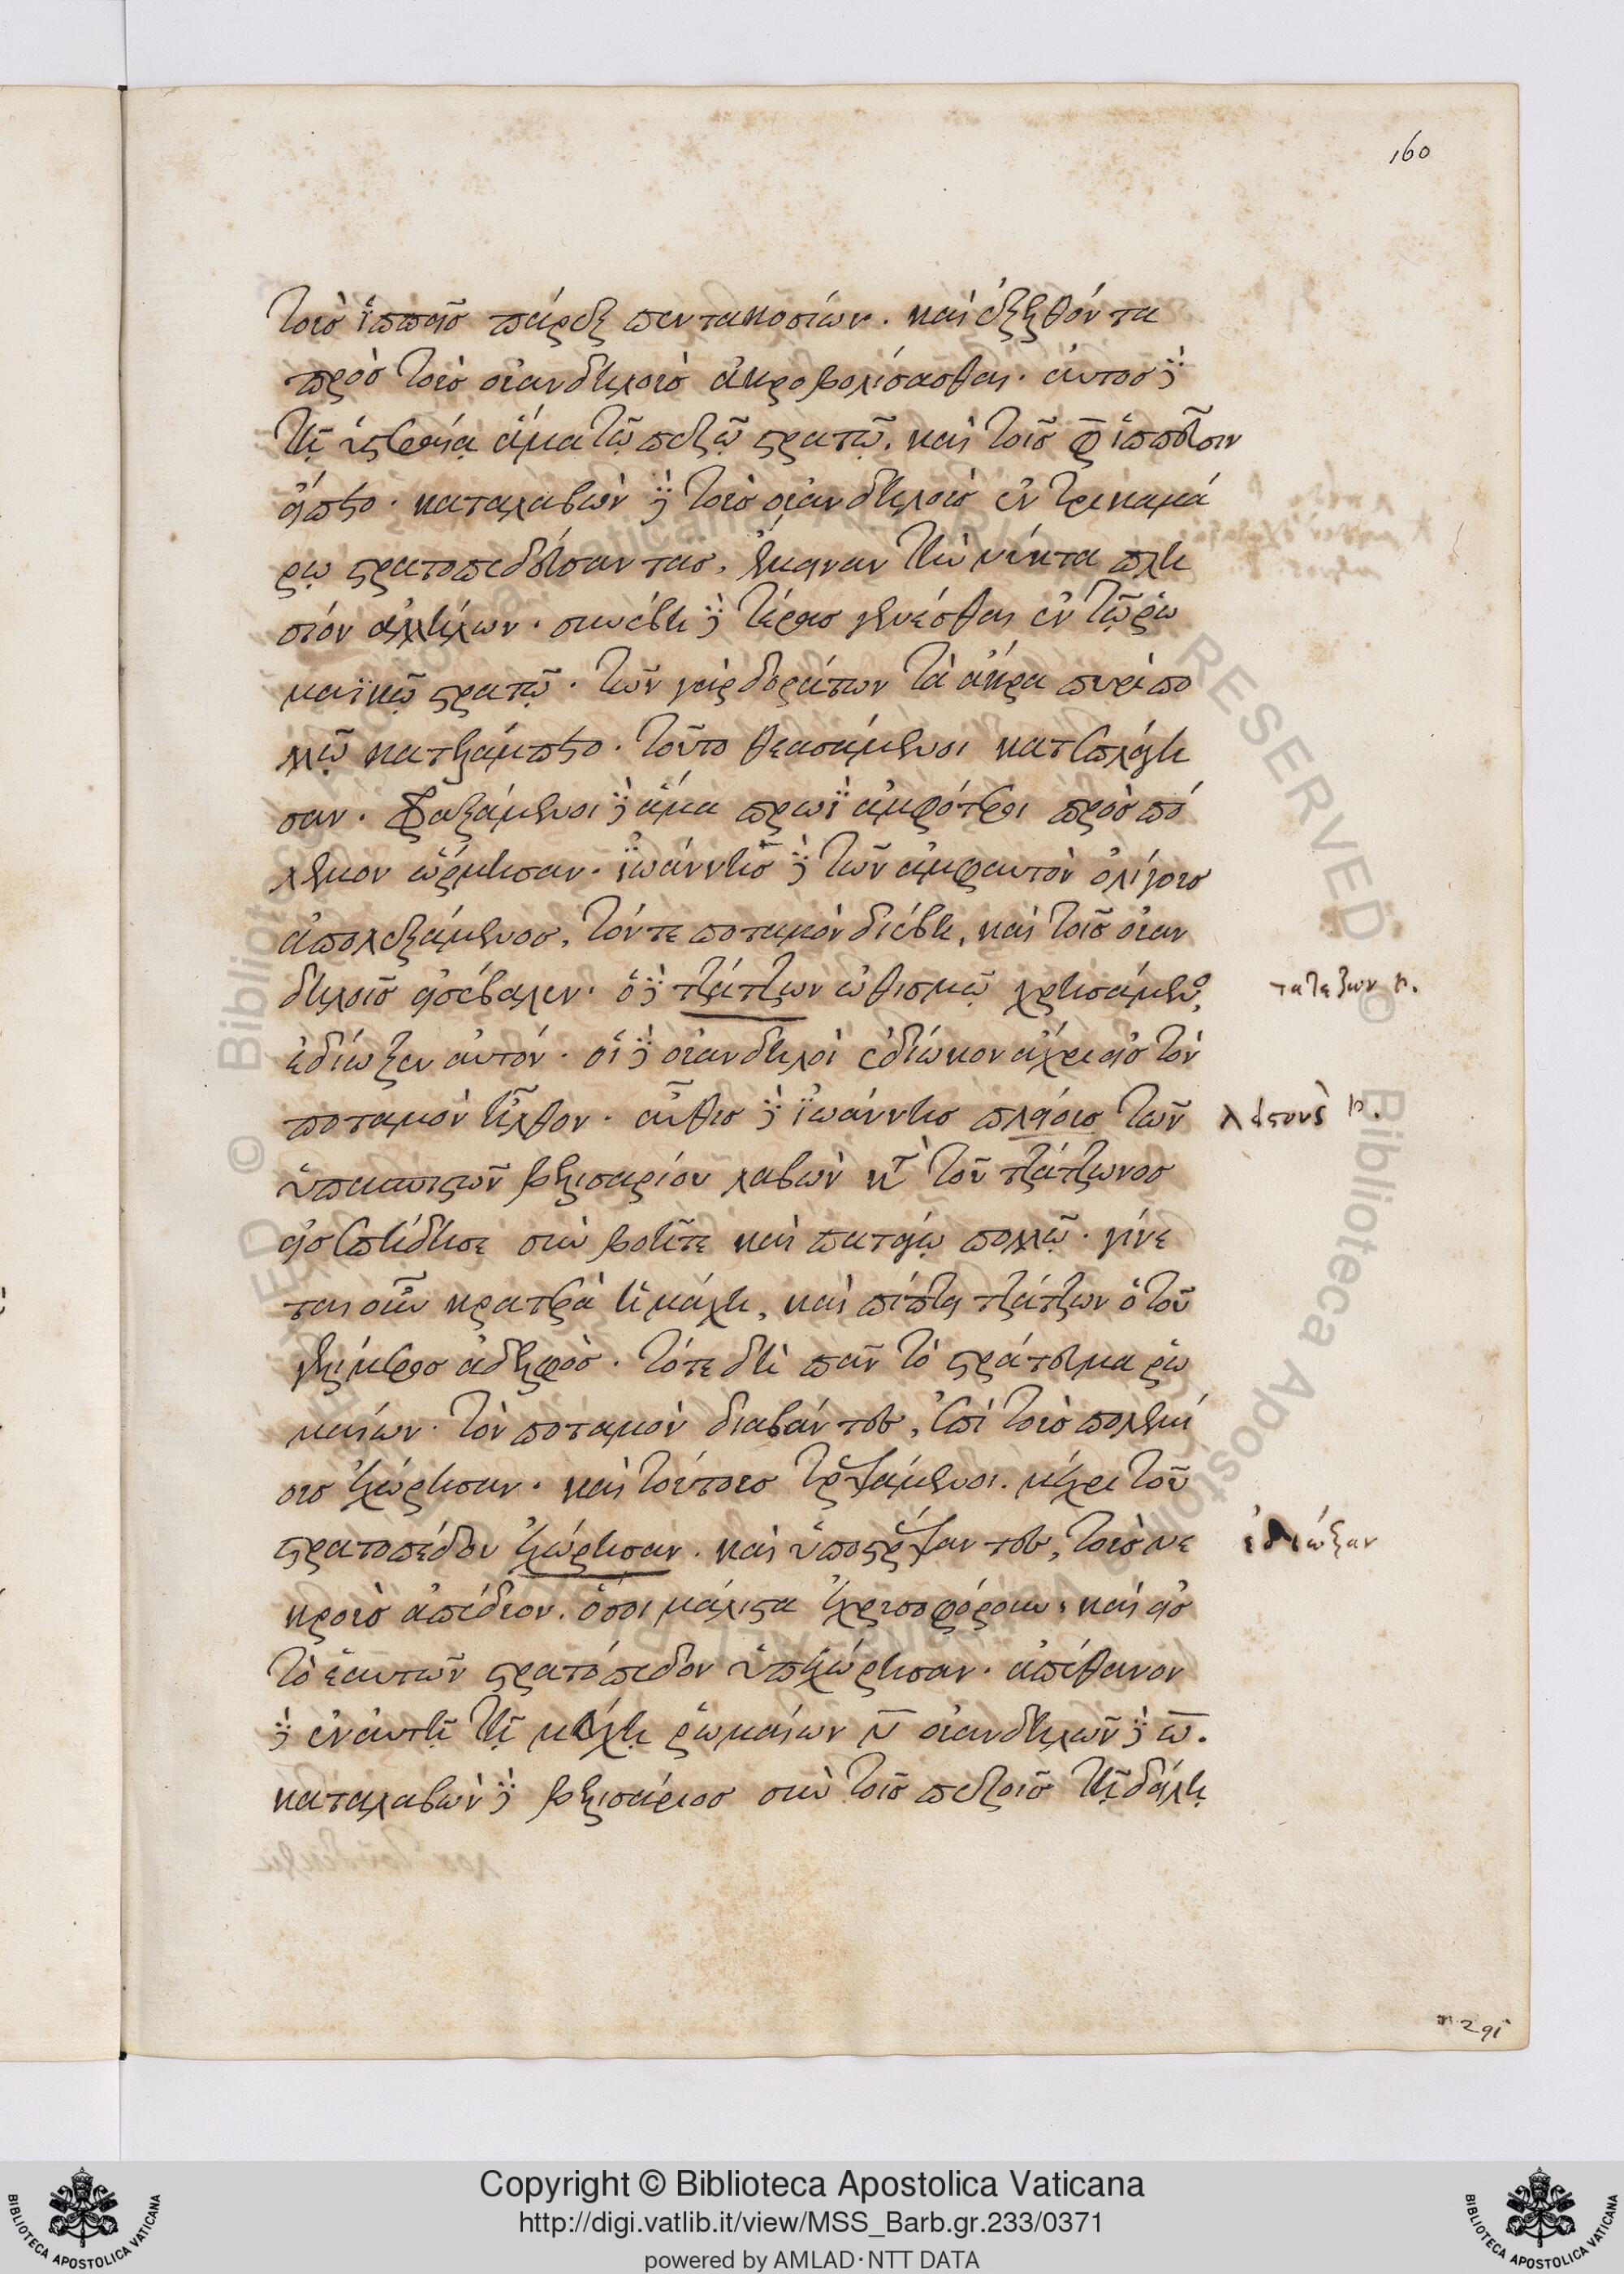 160
τοὺς ἱππεῖς πάρεξ πεντακοσίων. καὶ ἐξελθόντα
πρὸς τοὺς οὐανδήλους ἀκροβολίσασθαι. αὐτὸς δὲ
τῇ ὑστεραίᾳ ἅμα τῷ πεζῷ στρατῷ, καὶ τοῖς φ ἱππεῦσιν
εἵπετο. καταλαβὼν δὲ τοὺς οὐανδήλους ἐν τρικαμά
ρῳ στρατοπεδεύσαντας, ἔμειναν τὴν νύκτα πλη
σίον ἀλλήλων. συνέβη δὲ τέρας γενέσθαι ἐν τῷ ῥω
μαϊκῷ στρατῷ. τῶν γὰρ δοράτων τὰ ἄκρα πυρὶ πο
λλῷ κατελάμπετο. τοῦτο θεασάμενοι κατεπλάγη
σαν. διαταξάμενοι δὲ ἅμα πρωῒ ἀμφότεροι πρὸς πό
λεμον ὥρμησαν. ἰωάννης δὲ τῶν ἀμφαυτὸν ὀλίγους
ἀπολεξάμενος, τόν τε ποταμὸν διέβη, καὶ τοῖς οὐαν
δήλοις εἰσέβαλεν. ὁ δὲ τζάτζων ὠθισμῷ χρησάμενος,
ἐδίωξεν αὐτόν. οἱ δὲ οὐανδηλοὶ ἐδίωκον ἄχρι εἰς τὸν
ποταμὸν ἦλθον. αὖθις δὲ ἰωάννης πλείους τῶν
ὑπασπιστῶν βελισαρίου λαβὼν κατὰ τοῦ τζάτζωνος
εἰσεπήδησε σὺν βοῇ τε καὶ πατάγῳ πολλῷ. γίνε
ται οὖν κρατερὰ ἡ μάχη, καὶ πίπτει τζάτζων ὁ τοῦ
γελίμερος ἀδελφός. τότε δὴ πᾶν τὸ στράτευμα ῥω
μαίων τὸν ποταμὸν διαβάντες, ἐπὶ τοὺς πολεμί
ους ἐχώρησαν. καὶ τούτους τρεψάμενοι. μέχρι τοῦ
στρατοπέδου ἐχώρησαν. καὶ ὑποστρέψαντες, τοὺς νε
κροὺς ἀπέδυον. ὅσοι μάλιστα ἐχρυσοφόρουν. καὶ εἰς
τὸ ἑαυτῶν στρατόπεδον ὑπεχώρησαν. ἀπέθανον
δὲ ἐν αὐτῇ τῇ μάχῃ ῥωμαίων ν οὐανδηλῶν δὲ ω.
καταλαβὼν δὲ βελισάριος σὺν τοῖς πεζοῖς τῇ δείλῃ
ἐδιώξαν
291
Copyright © Biblioteca Apostolica Vaticana
http://digi.vatlib.it/view/MSS_Barb.gr.233/0371
powered by AMLAD·NTT DATA
BIBLIOTECA APOSTOLICA VATICANA
BIBLIOTECA APOSTOLICA VATICANA